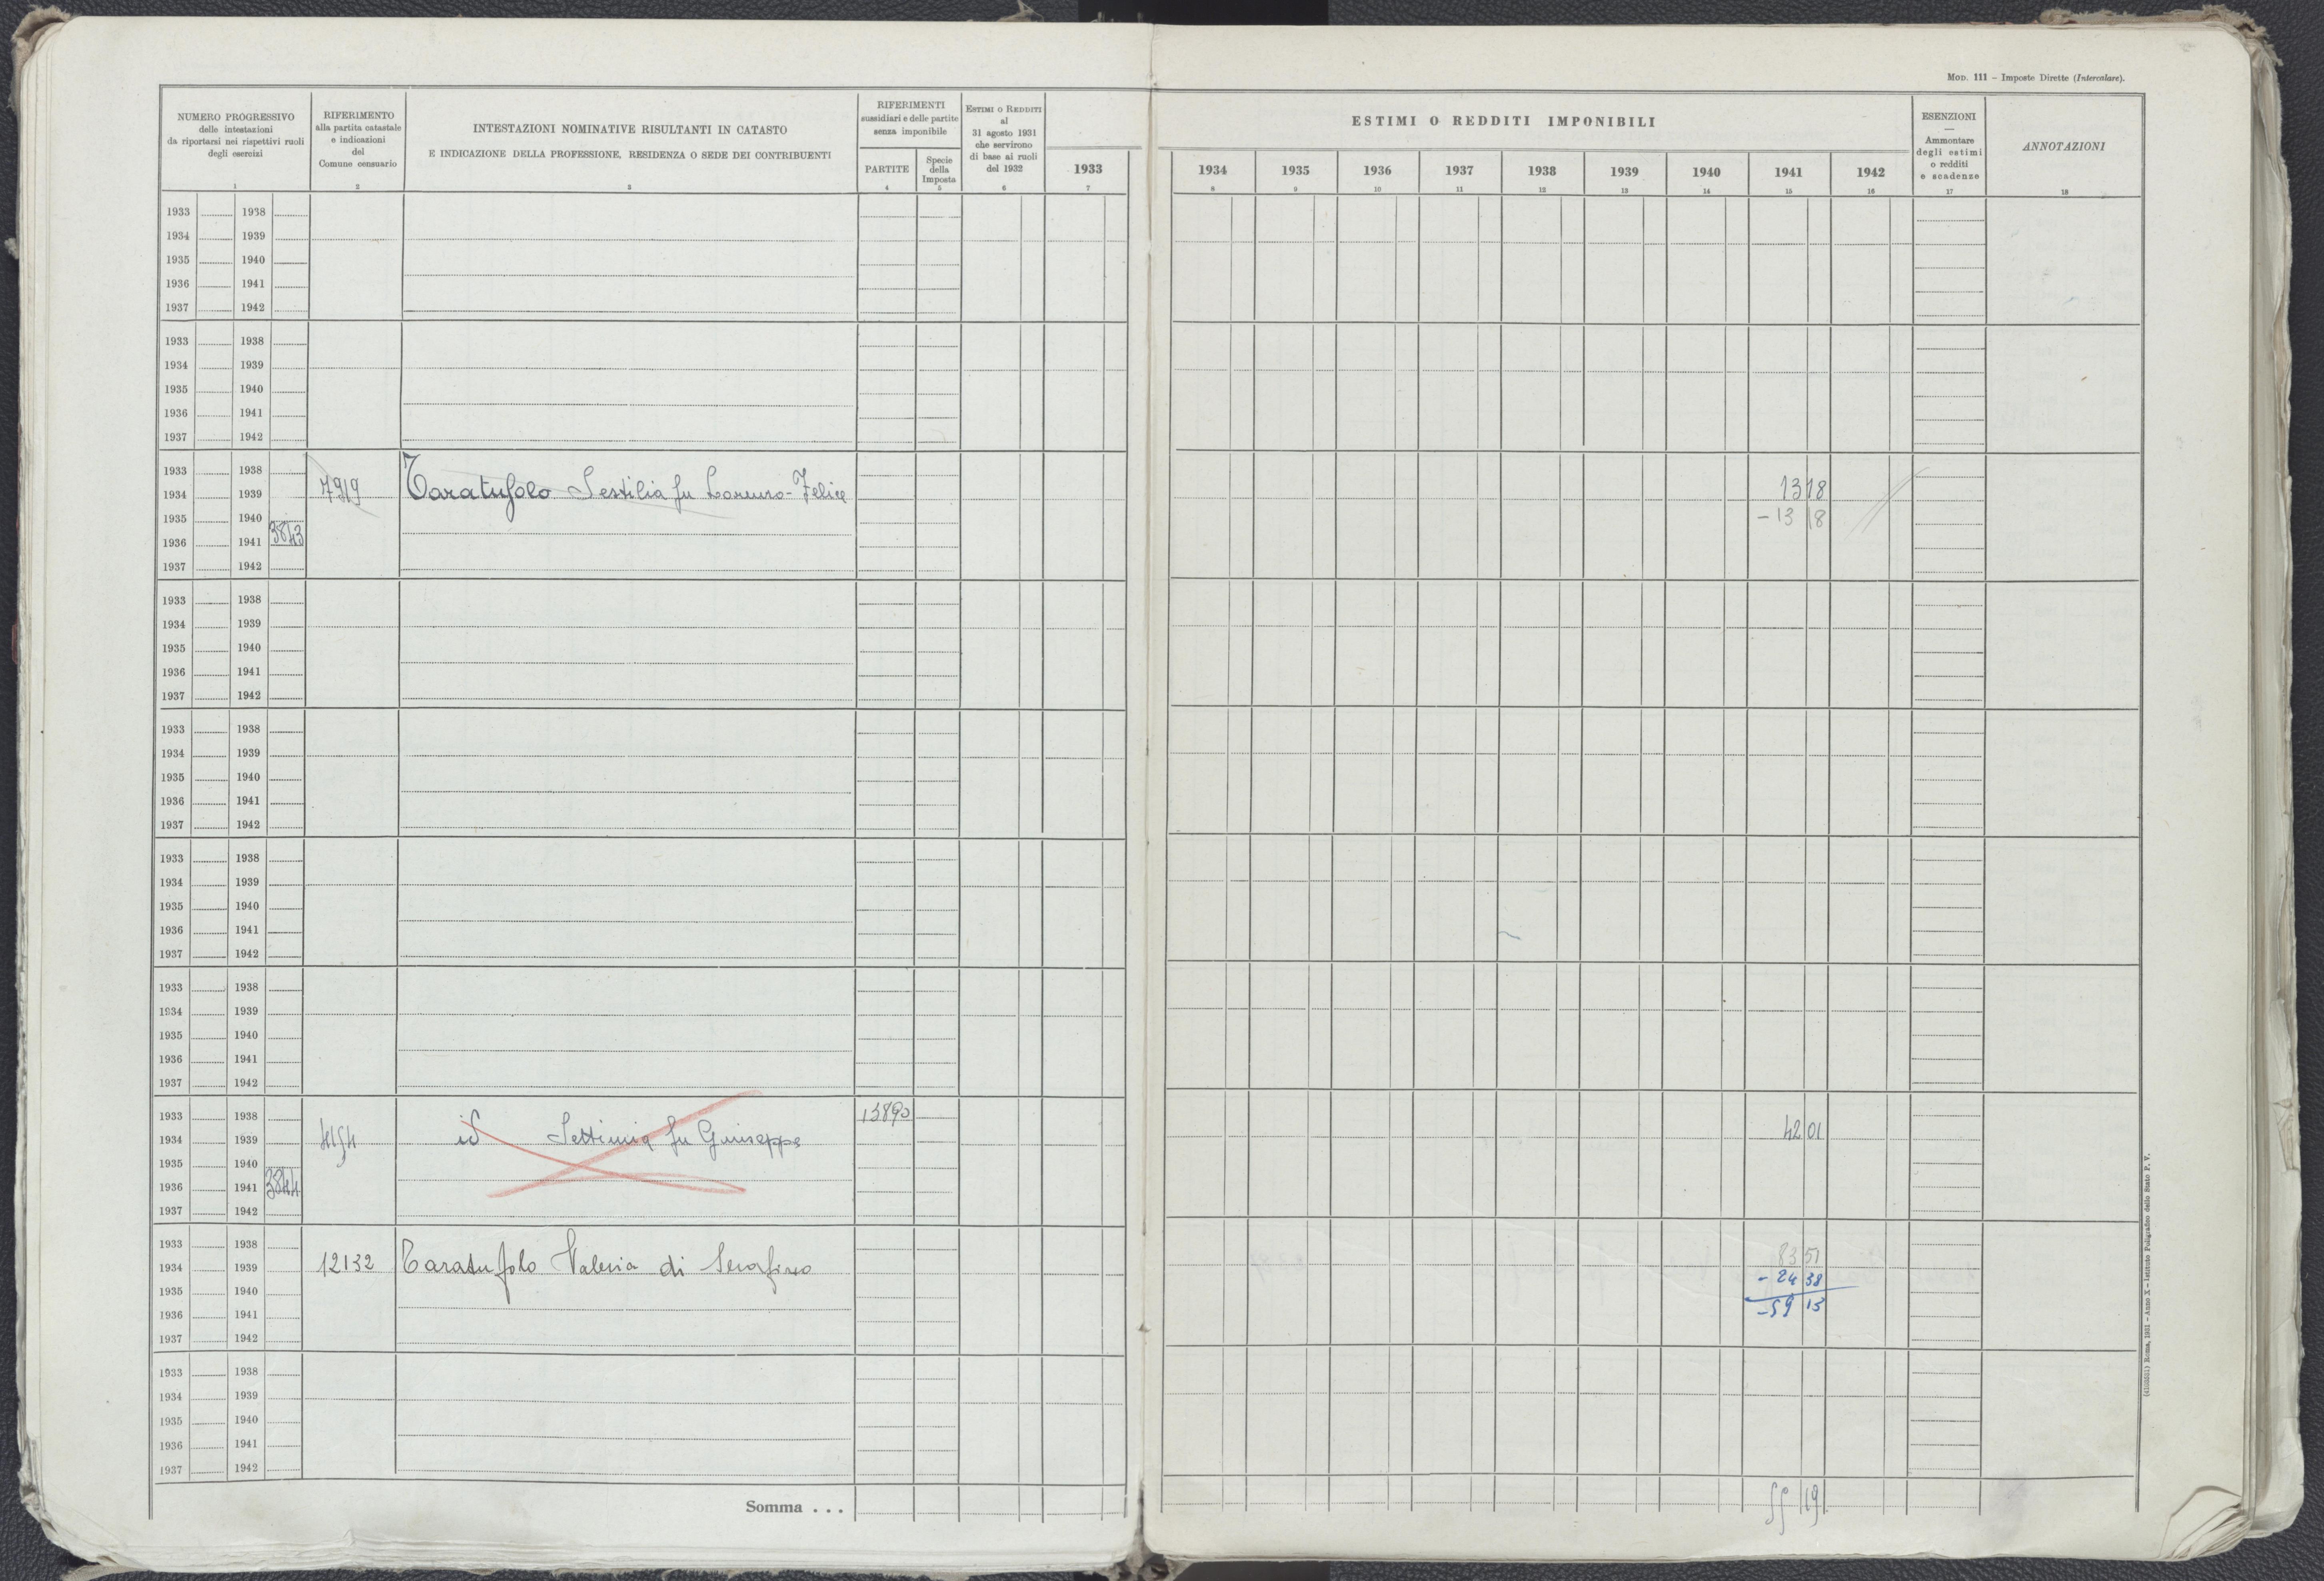 MOD. 111 – Imposte Dirette (Intercalare).
NUMERO PROGRESSIVO
delle intestazioni
da riportarsi nei rispettivi ruoli
degli esercizi
1
RIFERIMENTO
alla partita catastale
e indicazioni
del
Comune censuario
2
INTESTAZIONI NOMINATIVE RISULTANTI IN CATASTO
E INDICAZIONE DELLA PROFESSIONE, RESIDENZA O SEDE DEI CONTRIBUENTI
3
RIFERIMENTI
sussidiari e delle partite
senza imponibile
PARTITE
4
Specie
della
Imposta
5
ESTIMI O REDDITI
al
31 agosto 1931
che servirono
di base ai ruoli
del 1932
6
ESTIMI O REDDITI IMPONIBILI
1933 1934 1935 1936 1937 1938 1939 1940 1941 1942
7 8 9 10 11 12 13 14 15 16
ESENZIONI
—
Ammontare
degli estimi
o redditi
e scadenze
17
ANNOTAZIONI
18
1933 1938
1934 1939
1935 1940
1936 1941
1937 1942
1933 1938
1934 1939
1935 1940
1936 1941
1937 1942
1933 1938
1934 1939 7919 Taratufolo Sestilia fu Lorenzo-Felice 13 18
1935 1940 – 13 18
1936 1941 3843
1937 1942
1933 1938
1934 1939
1935 1940
1936 1941
1937 1942
1933 1938
1934 1939
1935 1940
1936 1941
1937 1942
1933 1938
1934 1939
1935 1940
1936 1941
1937 1942
1933 1938
1934 1939
1935 1940
1936 1941
1937 1942
1933 1938 13890
1934 1939 id Settimia fu Giuseppe 42 01
1935 1940
1936 1941 3844
1937 1942
1933 1938 83 51
1934 1939 12132 Taratufolo Valeria di Serafino – 24 38
1935 1940 – 59 13
1936 1941
1937 1942
1933 1938
1934 1939
1935 1940
1936 1941
1937 1942
Somma . . .
(4103551) Roma, 1931 – Anno X – Istituto Poligrafico dello Stato P. V.